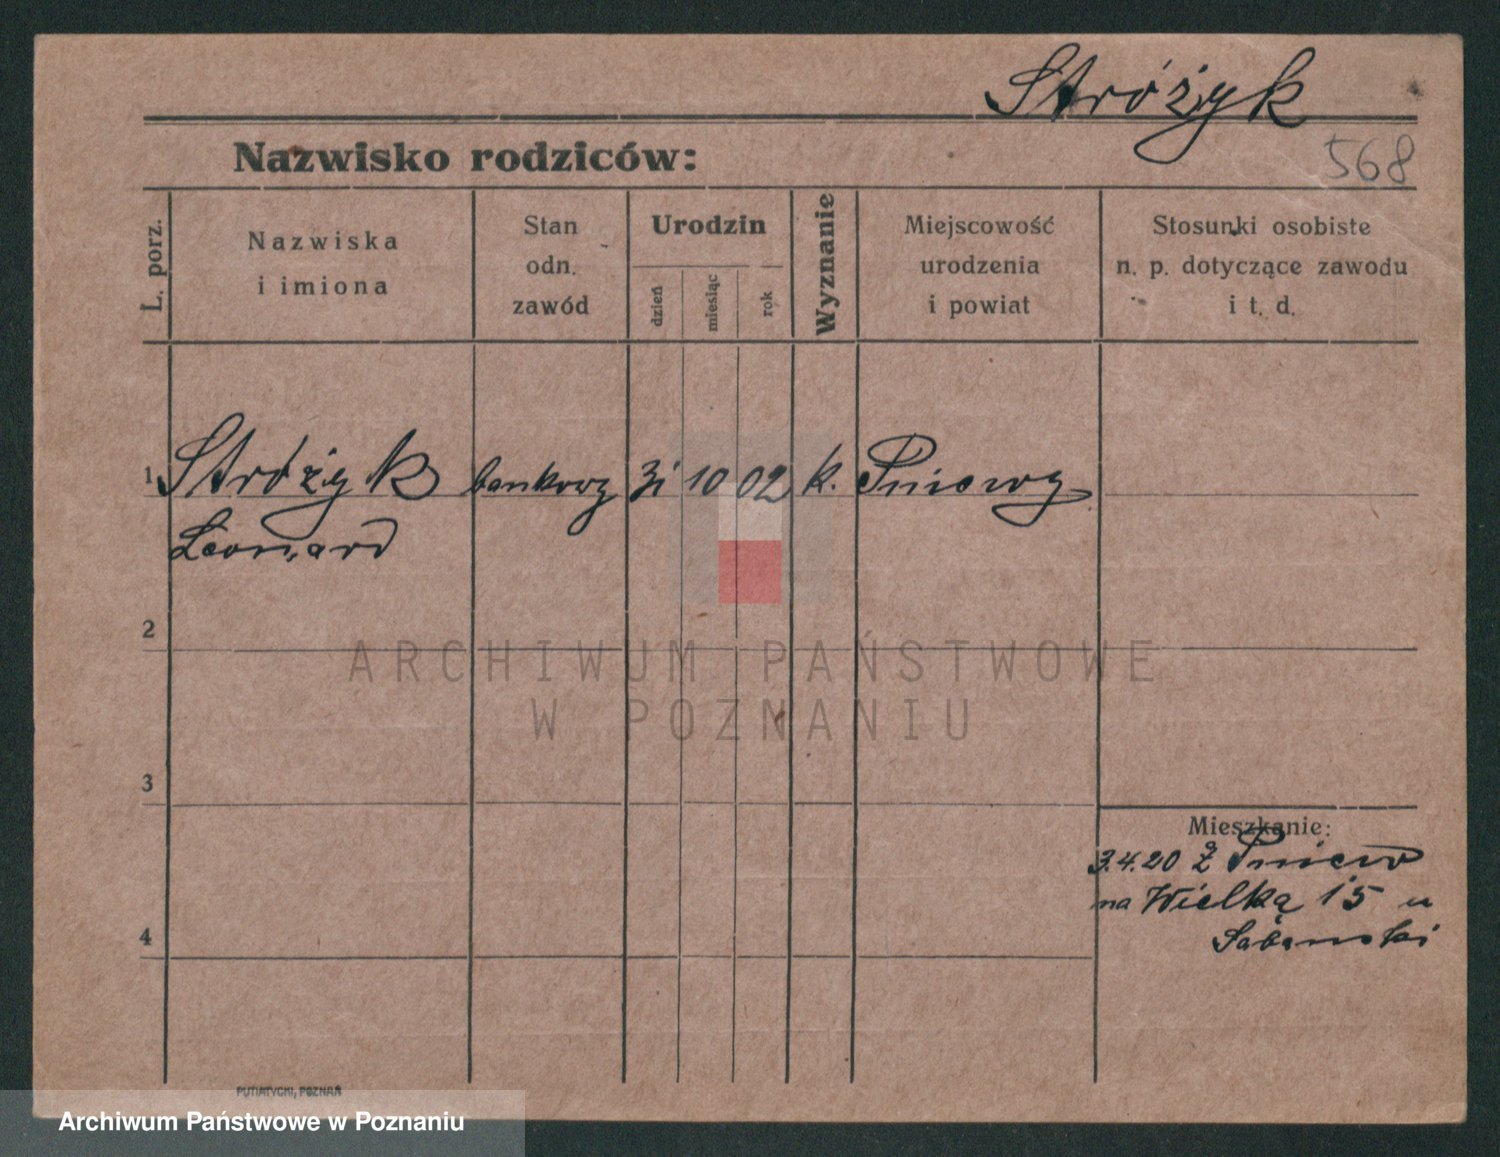 Stróżyk
Nazwisko rodziców:
568
L. porz.
Nazwiska
i imiona
Stan
odn.
zawód
Urodzin
dzień
miesiąc
rok
Wyznanie
Miejscowość
urodzenia
i powiat
Stosunki osobiste
n. p. dotyczące zawodu
i t. d.
1 Stróżyk bankowy 31 10 02 k. Pniewy
Leonard
2
ARCHIWUM PAŃSTWOWE
W POZNANIU
3
Mieszkanie:
3.4.20 z Pniew
na Wielką 15 u
4
PUTIATYCKI, POZNAŃ
Archiwum Państwowe w Poznaniu